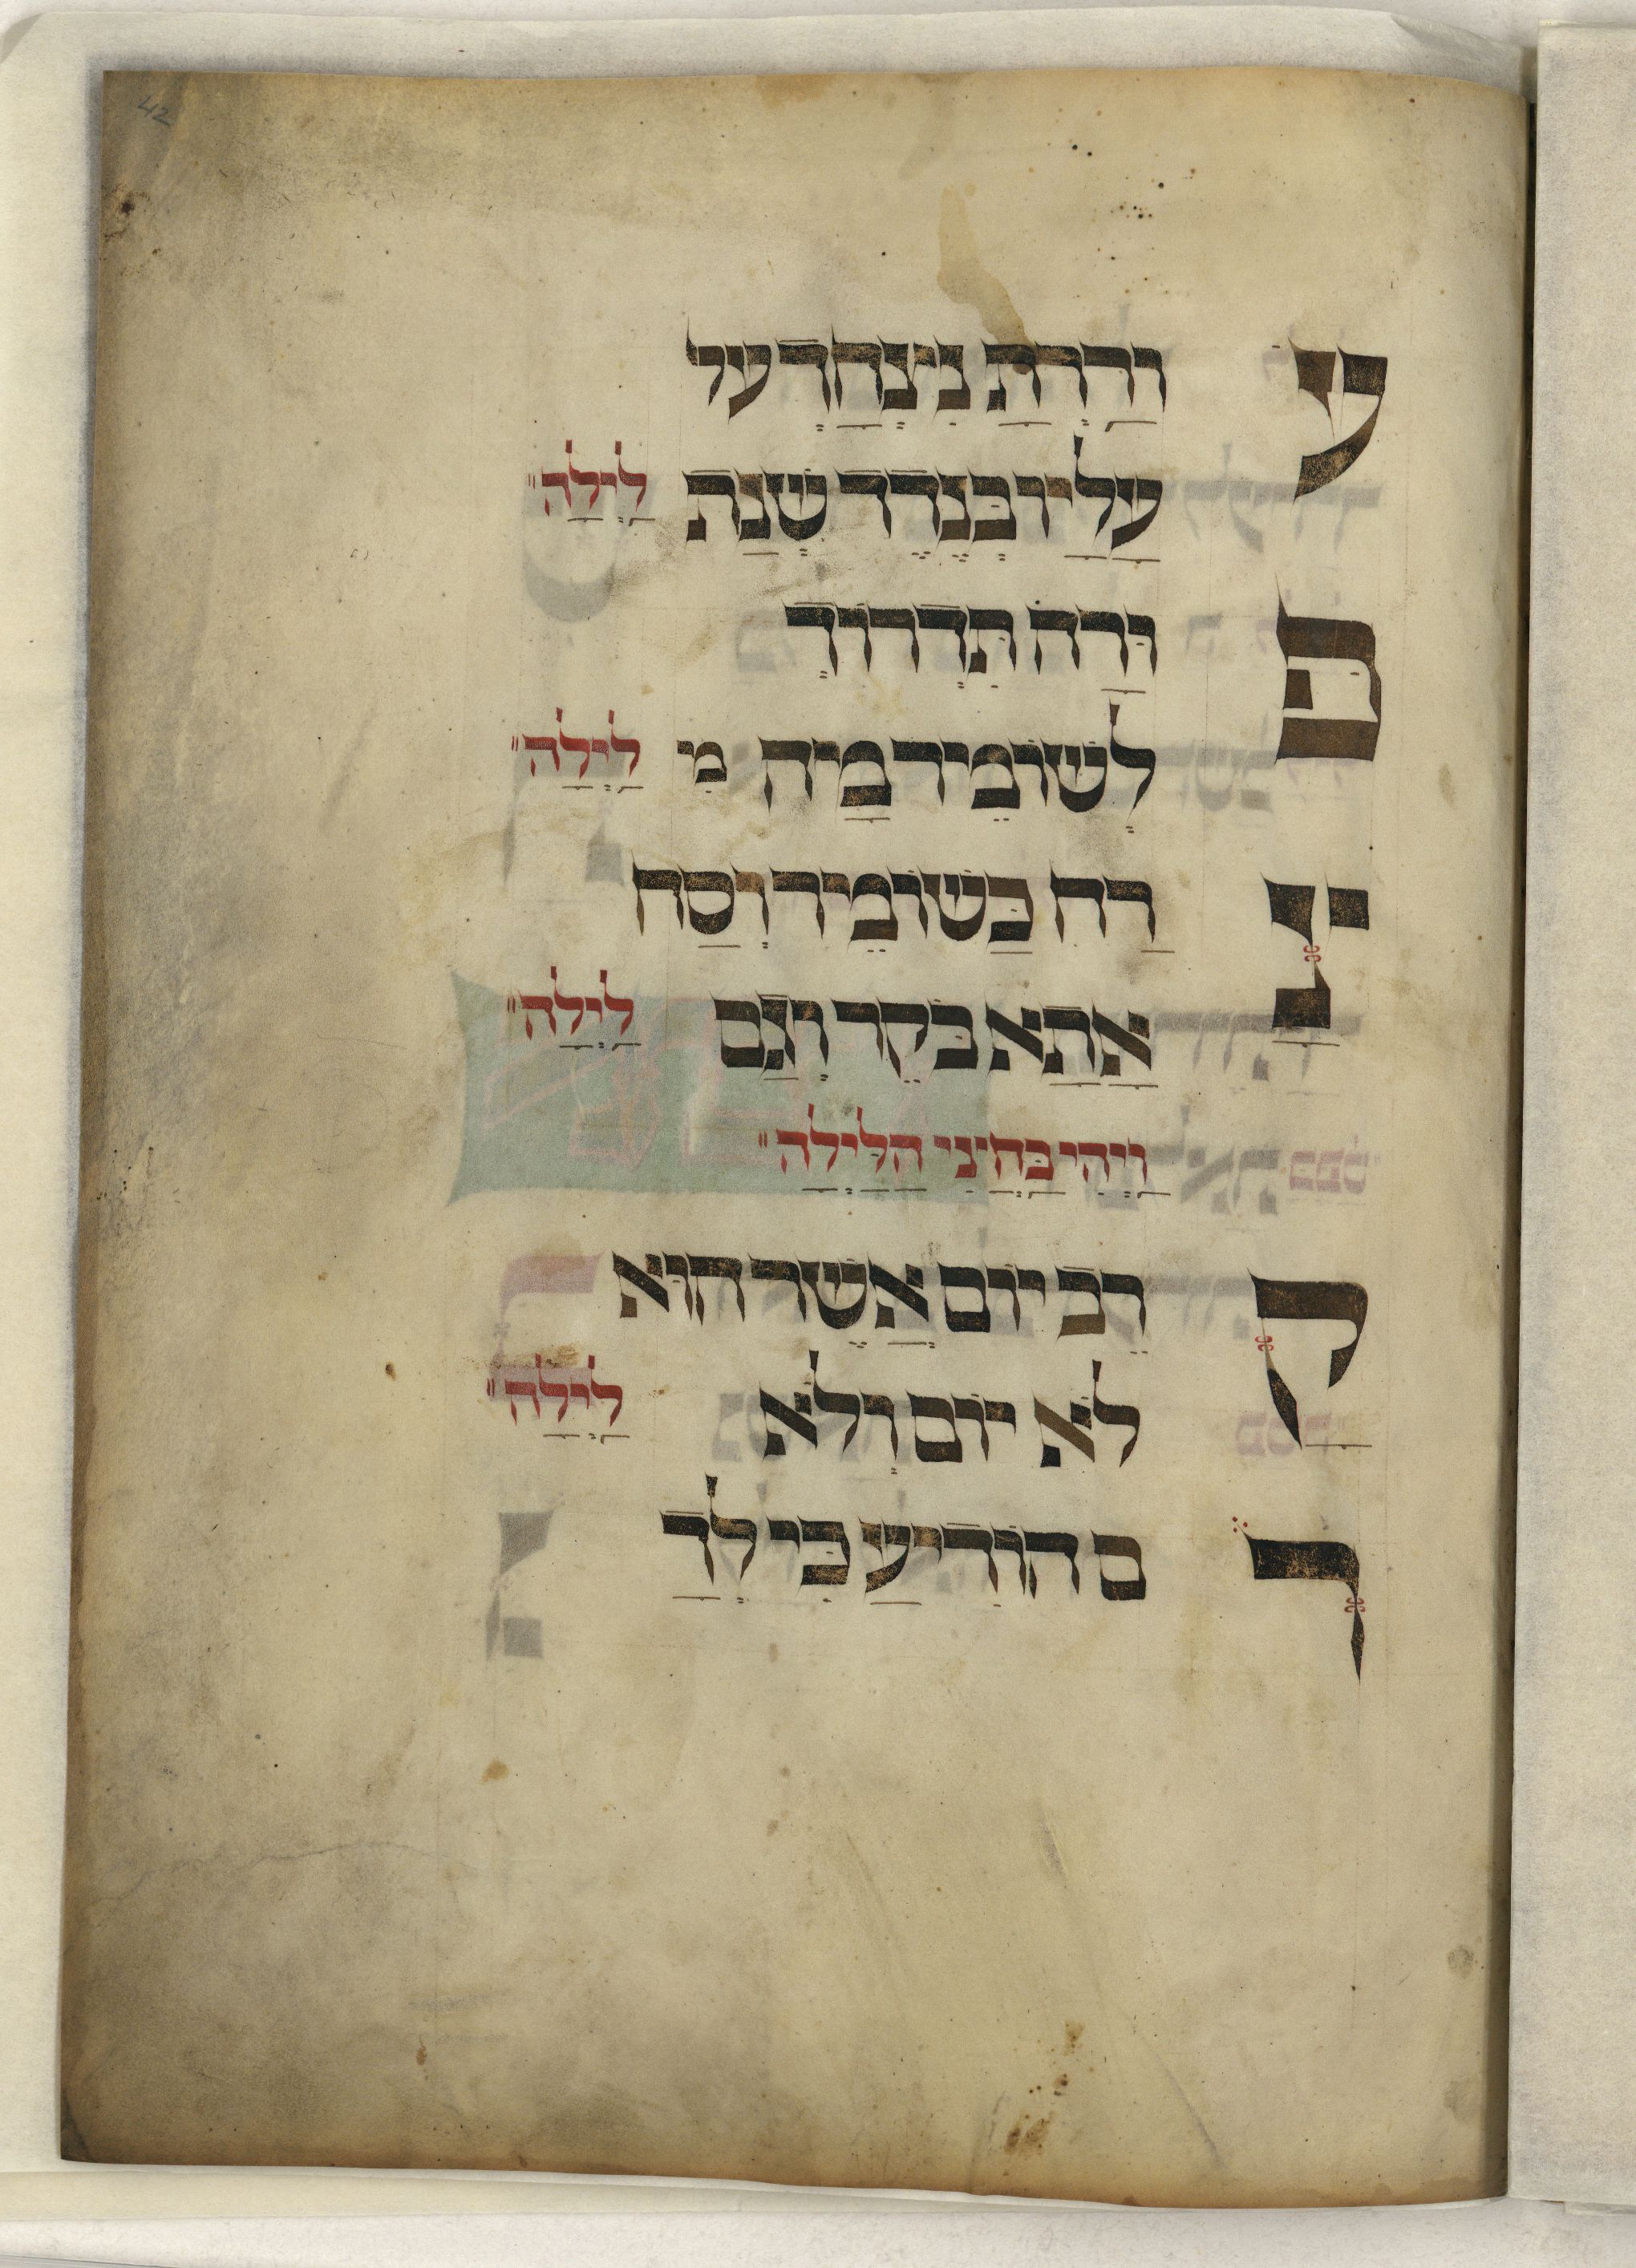 42
עוררת ניצחך על
עליו בנדד שנת לילה
פורה תדרוך
לשומיר מה מ לילה
צרח כשומיר וסח
אתא בקר וגם לילה
ויהי בחצי הלילה
קרב יום אשר הוא
לא יום ולא לילה
רם הודיע כי לך